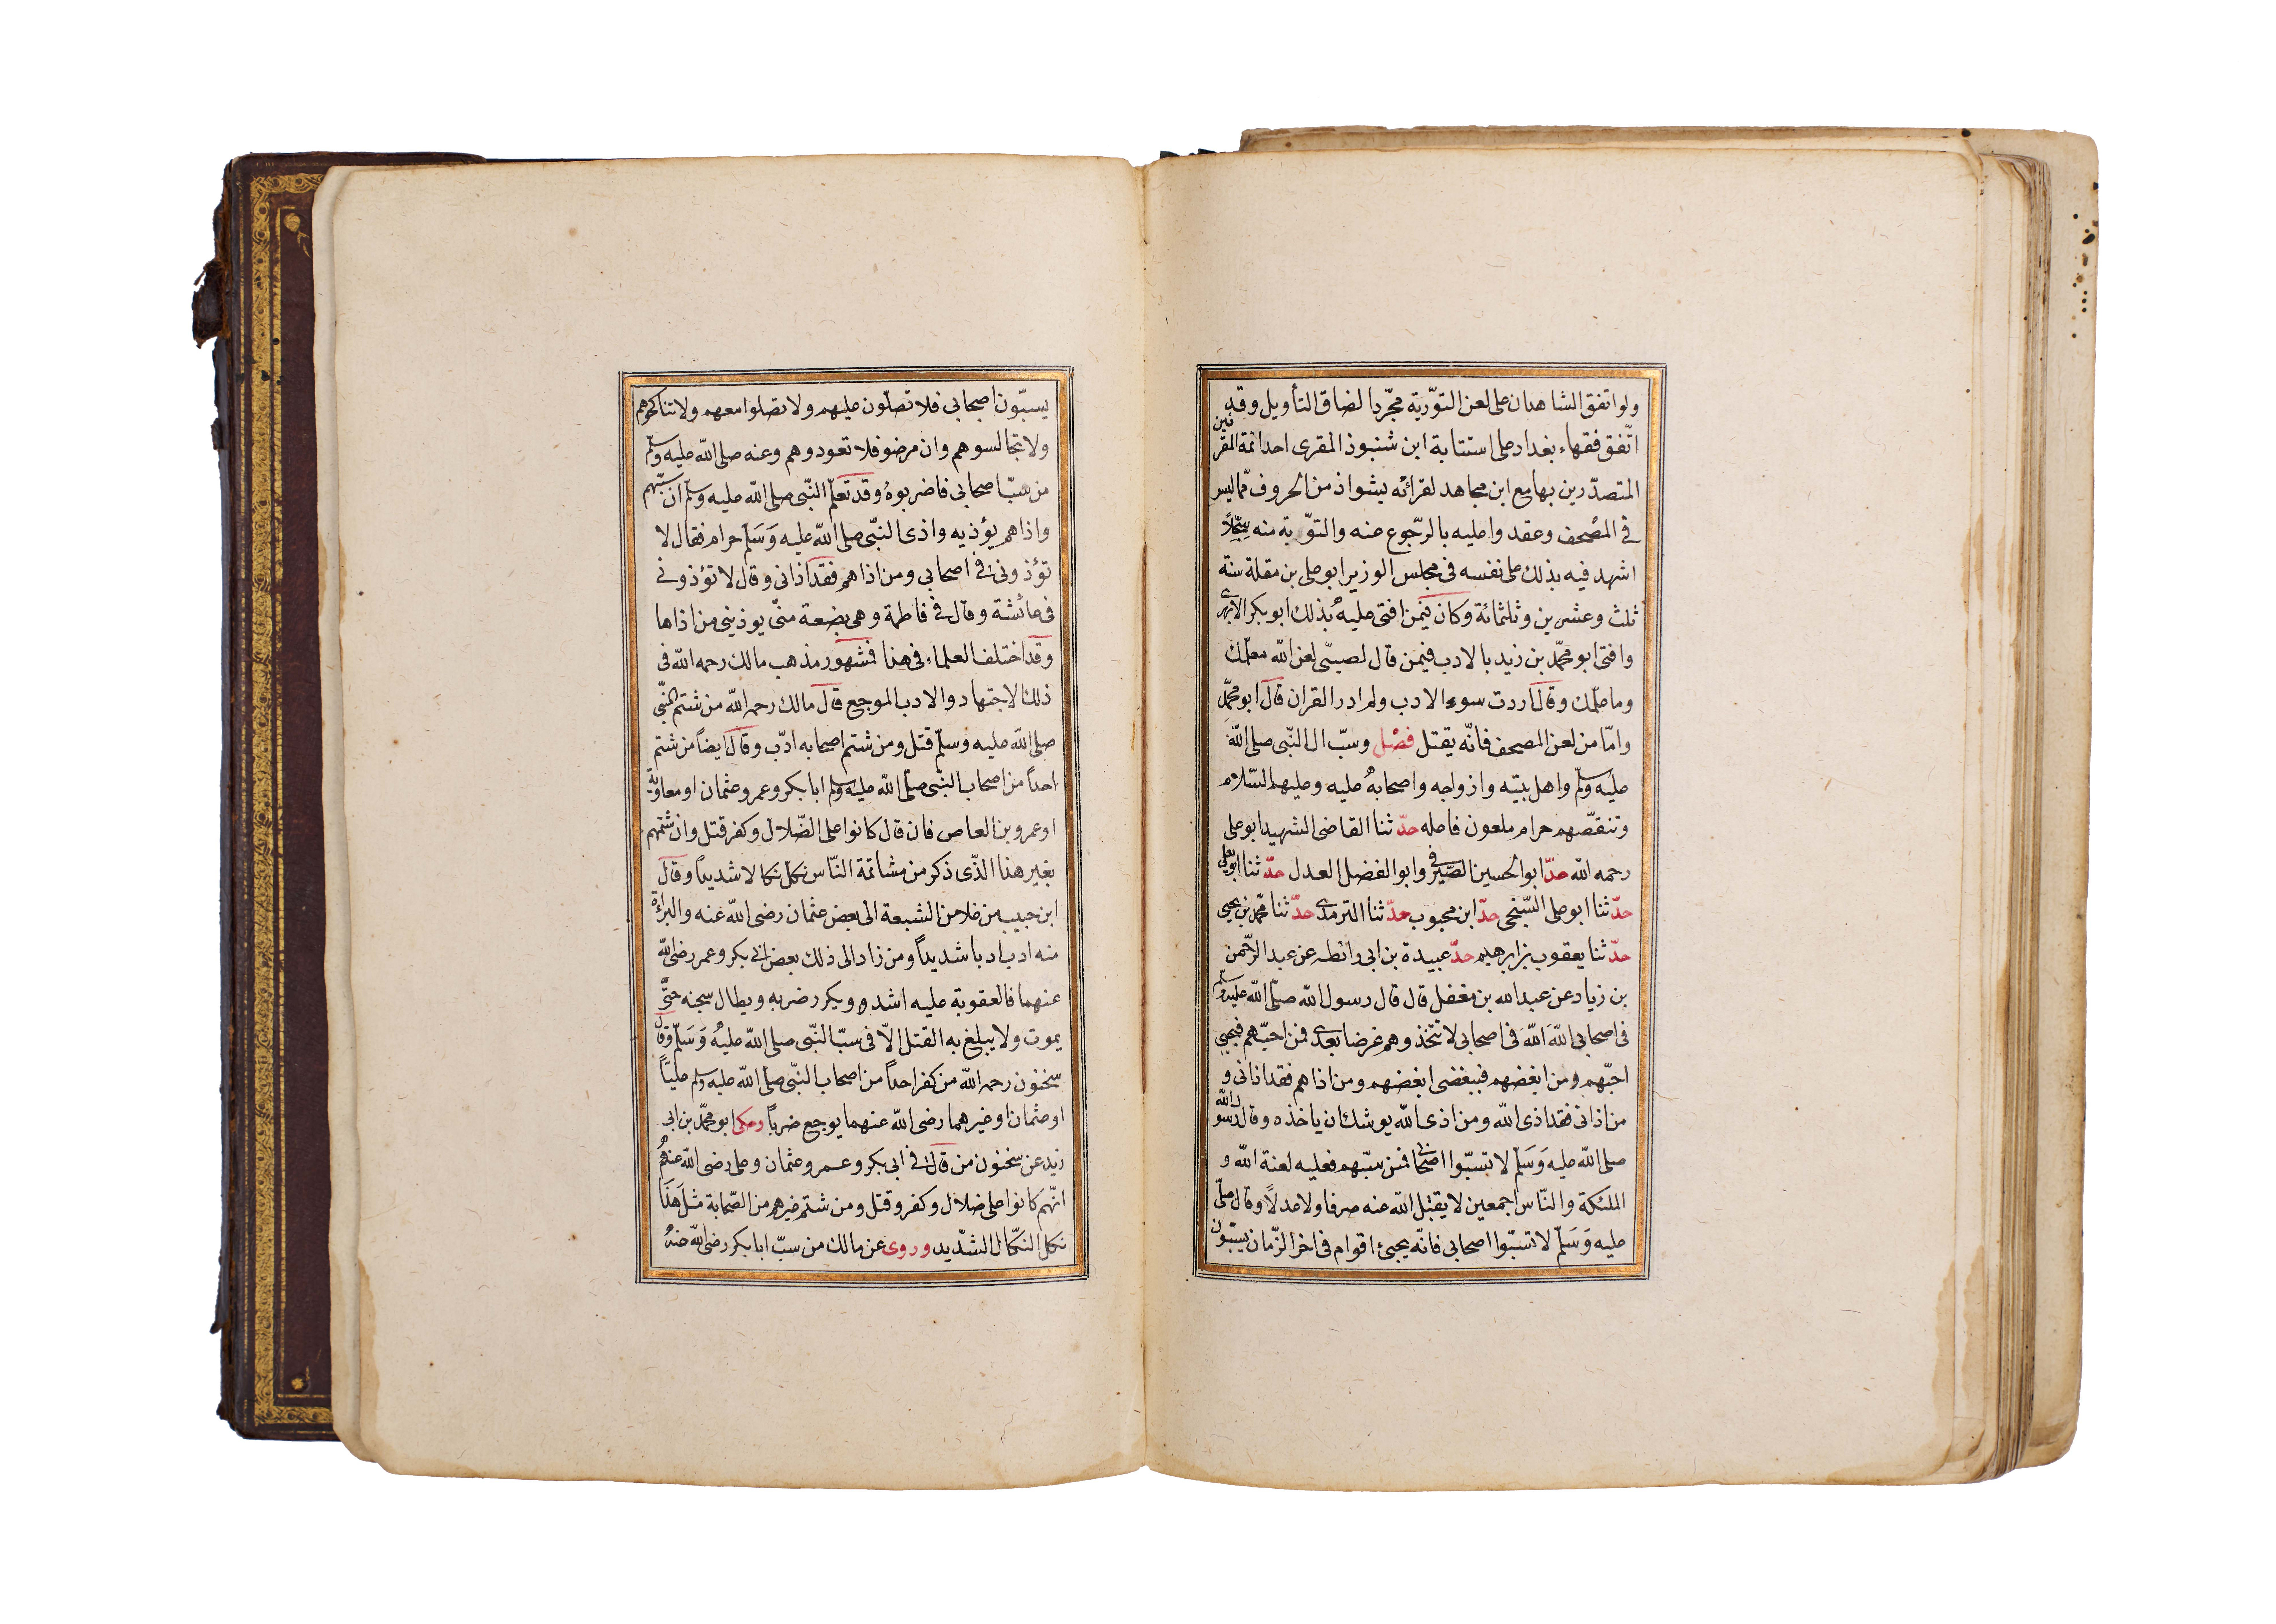 ولو اتفق الشاهدان على لعن التوّرية مجّردا لضاق التأويل وقد
اتّفق فقهاء بغداد على استتابة ابن شنبوذ المقرى احد ائمة المقرئين
المتصدّرين بها مع ابن مجاهد لقرائته بشواذ من الحروف ممّا ليس
فى المصْحف وعقدوا عليه بالرّجوع عنه والتوّبة منه سجّلاً
اشهد فيه بذلك على نفسه فى مجلس الوزير ابو على بن مقلة سنة
ثلث وعشرين وثلثمائة وكان فيمن افتى عليه بذلك ابو بكر الابهرى
وافتى ابو محمّد بن زيد بالادب فيمن قال لصبىّ لعن الله معلّمك
وما علّمك وقال اردت سوء الادب ولم ارد القران قال ابو محمّد
وامّا من لعن المصحف فانّه يقتل فصْل وسبّ ال النّبى صلى الله
عليه وسلّم واهل بيته وازواجه واصحابهُ عليه وعليهم السّلام
وتنقّصهم حرام ملعون فاعله حدّثنا القاضى الشهيد ابو على
رحمه الله حدّ ابو الحسين الصّيرفى وابو الفضل العدل حدّثنا ابو يعلى
حدّثنا ابو على السّنجى حدّ ابن محبوب حدّثنا الترمذى حدّثنا محمّد بن يحيى
حدّثنا يعقوب بن ابرهيم حدّ عبيدة بن ابى رائطه عن عبد الرّحمن
بن زياد عن عبد الله بن مغفل قال قال رسول الله صلّى الله عليه وسلم
فى اصحابى اللهَ اللهَ فى اصحابى لا تتّخذوهم غرضا بعدى فمن احبّهم فبحبى
احبّهم ومن ابغضهم فببغضى ابغضهم ومن اذاهم فقد اذانى و
من اذانى فقد اذى الله ومن اذى الله يوشك ان ياخذه وقال رسول الله
صلى الله عليه وَسَلّم لا تسبّوا اصحابى فمن سبّهم فعليه لعنة الله و
الملئكة والنّاس اجمعين لا يقبل الله منه صرفا ولا عدلاً وقال صلّى
عليه وَسَلّم لا تسبّوا اصحابى فانّه يجيئ اقوام فى اخر الزّمان يسبّون
يسبّون اصحابى فلا تصلّون عليهم ولا تصلوا معهم ولا تناكحوهم
ولا تجالسوهم وان مرضو فلا تعودوهم وعنه صلى الله عليه وسلّم
من سبّ اصحابى فاضربوهُ وقد تعلّم النّبى صلى الله عليه وسلّم ان سبّهم
واذاهم يؤذيه واذى النّبى صلى الله عليه وَسَلّم حرام فقال لا
تؤذونى فى اصحابى ومن اذاهم فقد اذانى وقال لا تؤذونى
فى عائشة وقال فى فاطمة وهى بضعة منّى يوذينى من اذاها
وقد اختلف العلماء فى هذا فمشهور مذهب مالك رحمه الله فى
ذلك الاجتهاد والادب الموجع قال مالك رحمه الله من شتم النّبى
صلى الله عليه وسلّم قتل ومن شتم اصحابه ادّب وقال ايضا من شتم
احداً من اصحاب النبى صلّى الله عليه وسلم ابا بكر وعمر وعثمان او معاوية
او عمرو بن العاص فان قال كانوا على الضّلال وكفر قتل وان شتمهم
بغير هذا الذّى ذكر من مشاتمة النّاس نكل نكالا شديداً وقال
ابن حبيب من غلا من الشيعة الى بعض عثمان رضى الله عنه والبراءة
منه ادب ادبا شديداً ومن زاد الى ذلك بعض ابى بكر وعمر رضى الله
عنهما فالعقوبة عليه اشد ويكرر ضربه ويطال سجنه حتّى
يموت ولا يبلغ به القتل الّا فى سبّ النّبى صلى الله عليهُ وَسَلّم وقال
سحنون رحمه الله من كفر احداً من اصحاب النّبى صلى الله عليه وسلم عليّاً
او عثمان او غيرهما رضى الله عنهما يوجع ضرباً وحكى ابو محمّد بن ابى
زيد عن سحنون من قال فى ابى بكر وعمر وعثمان وعلى رضى الله عنهمُ
انّهم كانوا على ضلال وكفر وقتل ومن شتم غيرهم من الصّحابة مثل هَذَا
نكل النكّال الشّديد وروى عن مالك من سبّ ابا بكر رضى الله عنهُ